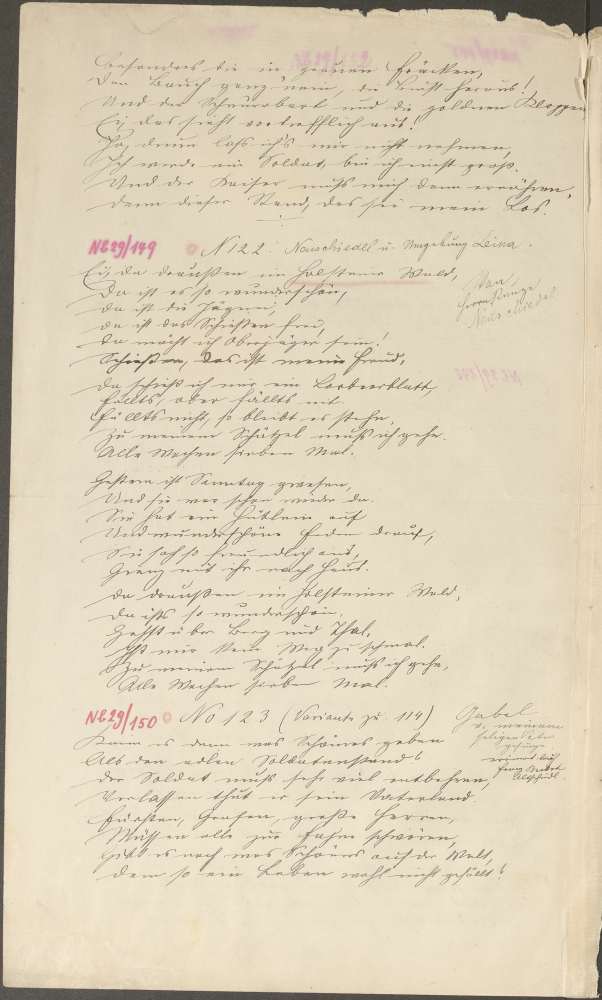 Besonders die in grauen Fräcken,
Den Bauch ganz nein, die Brust heraus!
Und der Schnurrbart und die goldnen Klappen
Ei, das sieht vortrefflich aus!
Ja, denn laß ich's mir nicht nehmen,
Ich werde ein Soldat, bin ich nicht groß.
Und der Kaiser muß mich dann ernähren,
denn dieser Stand, das sei mein Los.
NE29/149 N 122. Neuschiedel u. Umgebung Leina.
Ei, da draußen im Holsteiner Wald,
Da ist es so wunderschön,
Von Herrn
Neuschiedel
da ist die Jägerei,
da ist das Schießen frei,
da möcht ich Oberjäger sein!
Schießen, das ist meine Freud,
Da schieß ich mir ein Lorbeerblatt,
fällts, oder fällts nit.
Fällts nicht, so bleibt es stehn.
Zu meinem Schätzel muß ich gehn.
Alle Wochen sieben Mal.
Gestern ist Sonntag gwesen,
Und sie war schon wieder da.
Sie hat ein Hütlein auf
Und wunderschöne Feder drauf,
Sie sah so freundlich aus,
Gieng mit ihr nach Haus.
Da draußen im Holsteiner Wald,
Da ists so wunderschön.
Gehst über Berg und Thal,
Ist mir kein Weg zu schmal.
Zu meinem Schätzel muß ich gehn,
Alle Wochen sieben Mal.
NE29/150 No 123 (Variante zu 114) Gabel
v. meinem
seligen Vater
gesungen
Kann es denn was Schönres geben
Als den edlen Soldatenstand?
Der Soldat muß sehr viel entbehren,
Verlassen thut er sein Vaterland.
Fürsten, Grafen, große Herren,
Müssen alle zur Fahne schwören,
Gibt es noch was Schöners auf der Welt,
Dem so ein Leben wohl nicht gefällt?